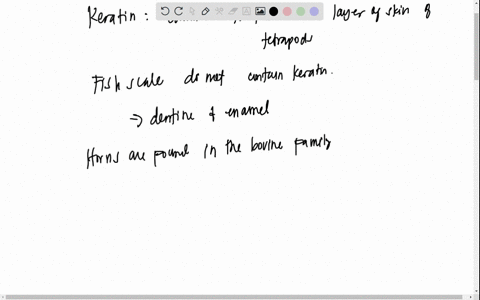 Keratin : layer of skin of
tetrapods
Fish scale do not contain keratin.
⇒ dentine & enamel
Horns are found in the bovine family